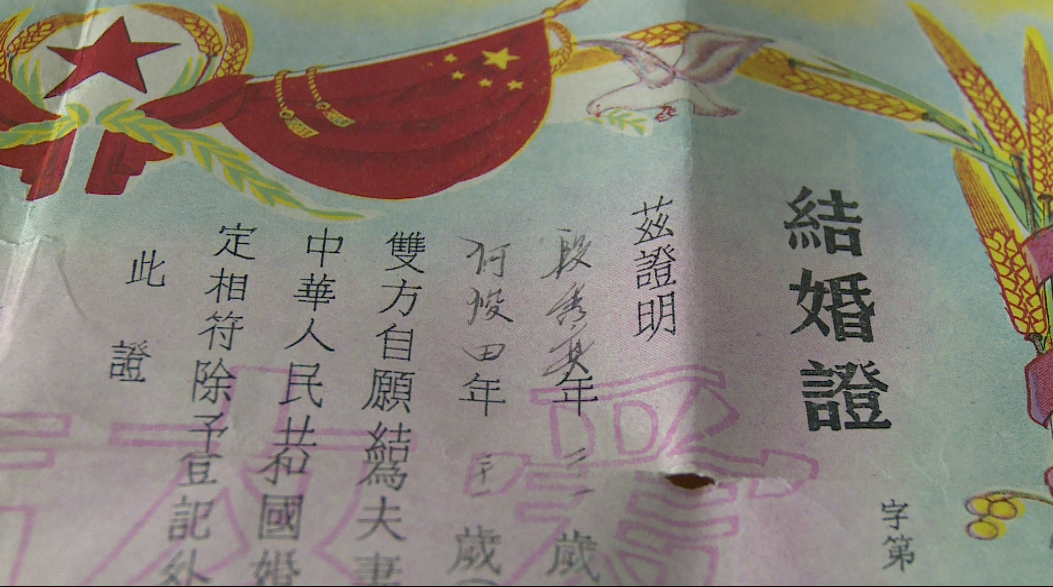 結婚證
字第
茲證明
段秀英年二一歲
何俊田年二一歲
雙方自願結為夫妻
中華人民共和國婚
定相符除予登記外
此證